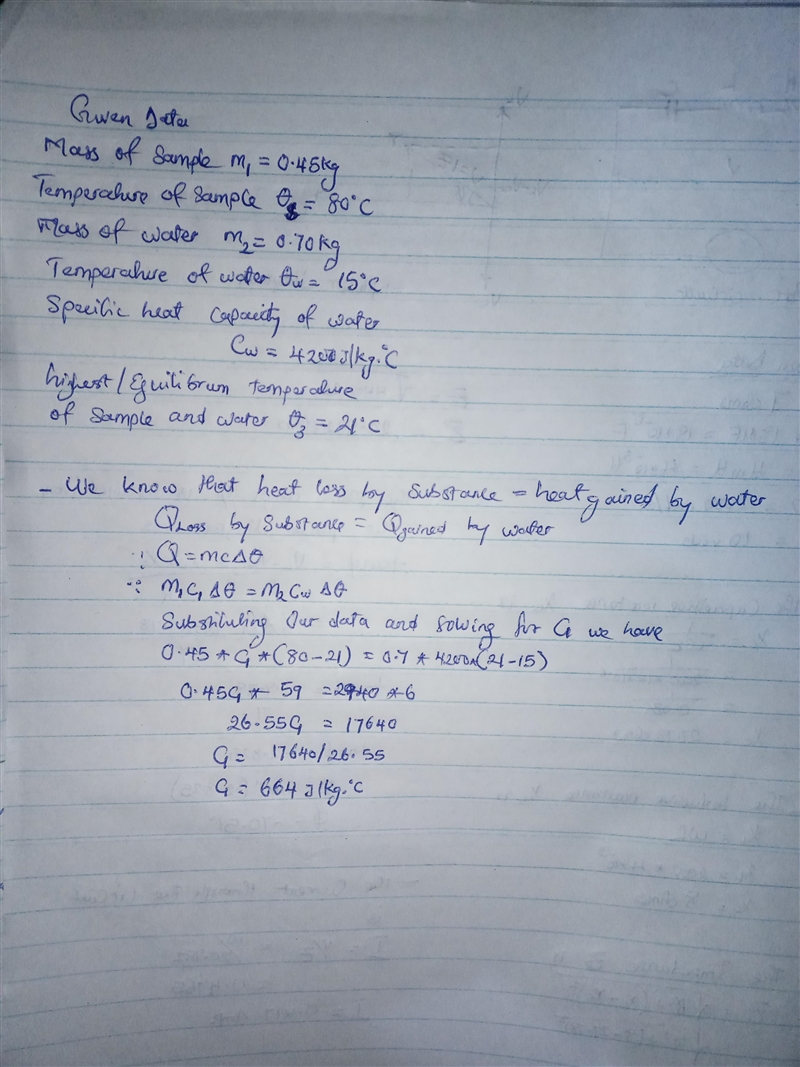 Given Data
Mass of Sample m₁ = 0.45kg
Temperature of Sample θs = 80°C
Mass of water m₂ = 0.70kg
Temperature of water θw = 15°C
Specific heat capacity of water
Cw = 4200J/kg.°C
highest/Equilibrum temperature
of Sample and water θ₃ = 21°C
- We know that heat loss by Substance = heat gained by water
QLoss by Substance = Qgained by water
∵ Q = mcΔθ
∵ M₁C₁Δθ = M₂CwΔθ
Substituting Our data and solving for C₁ we have
0.45 * C₁ * (80-21) = 0.7 * 4200*(21-15)
0.45C₁ * 59 = 2940 * 6
26.55C₁ = 17640
C₁ = 17640/26.55
C₁ = 664 J/kg.°C